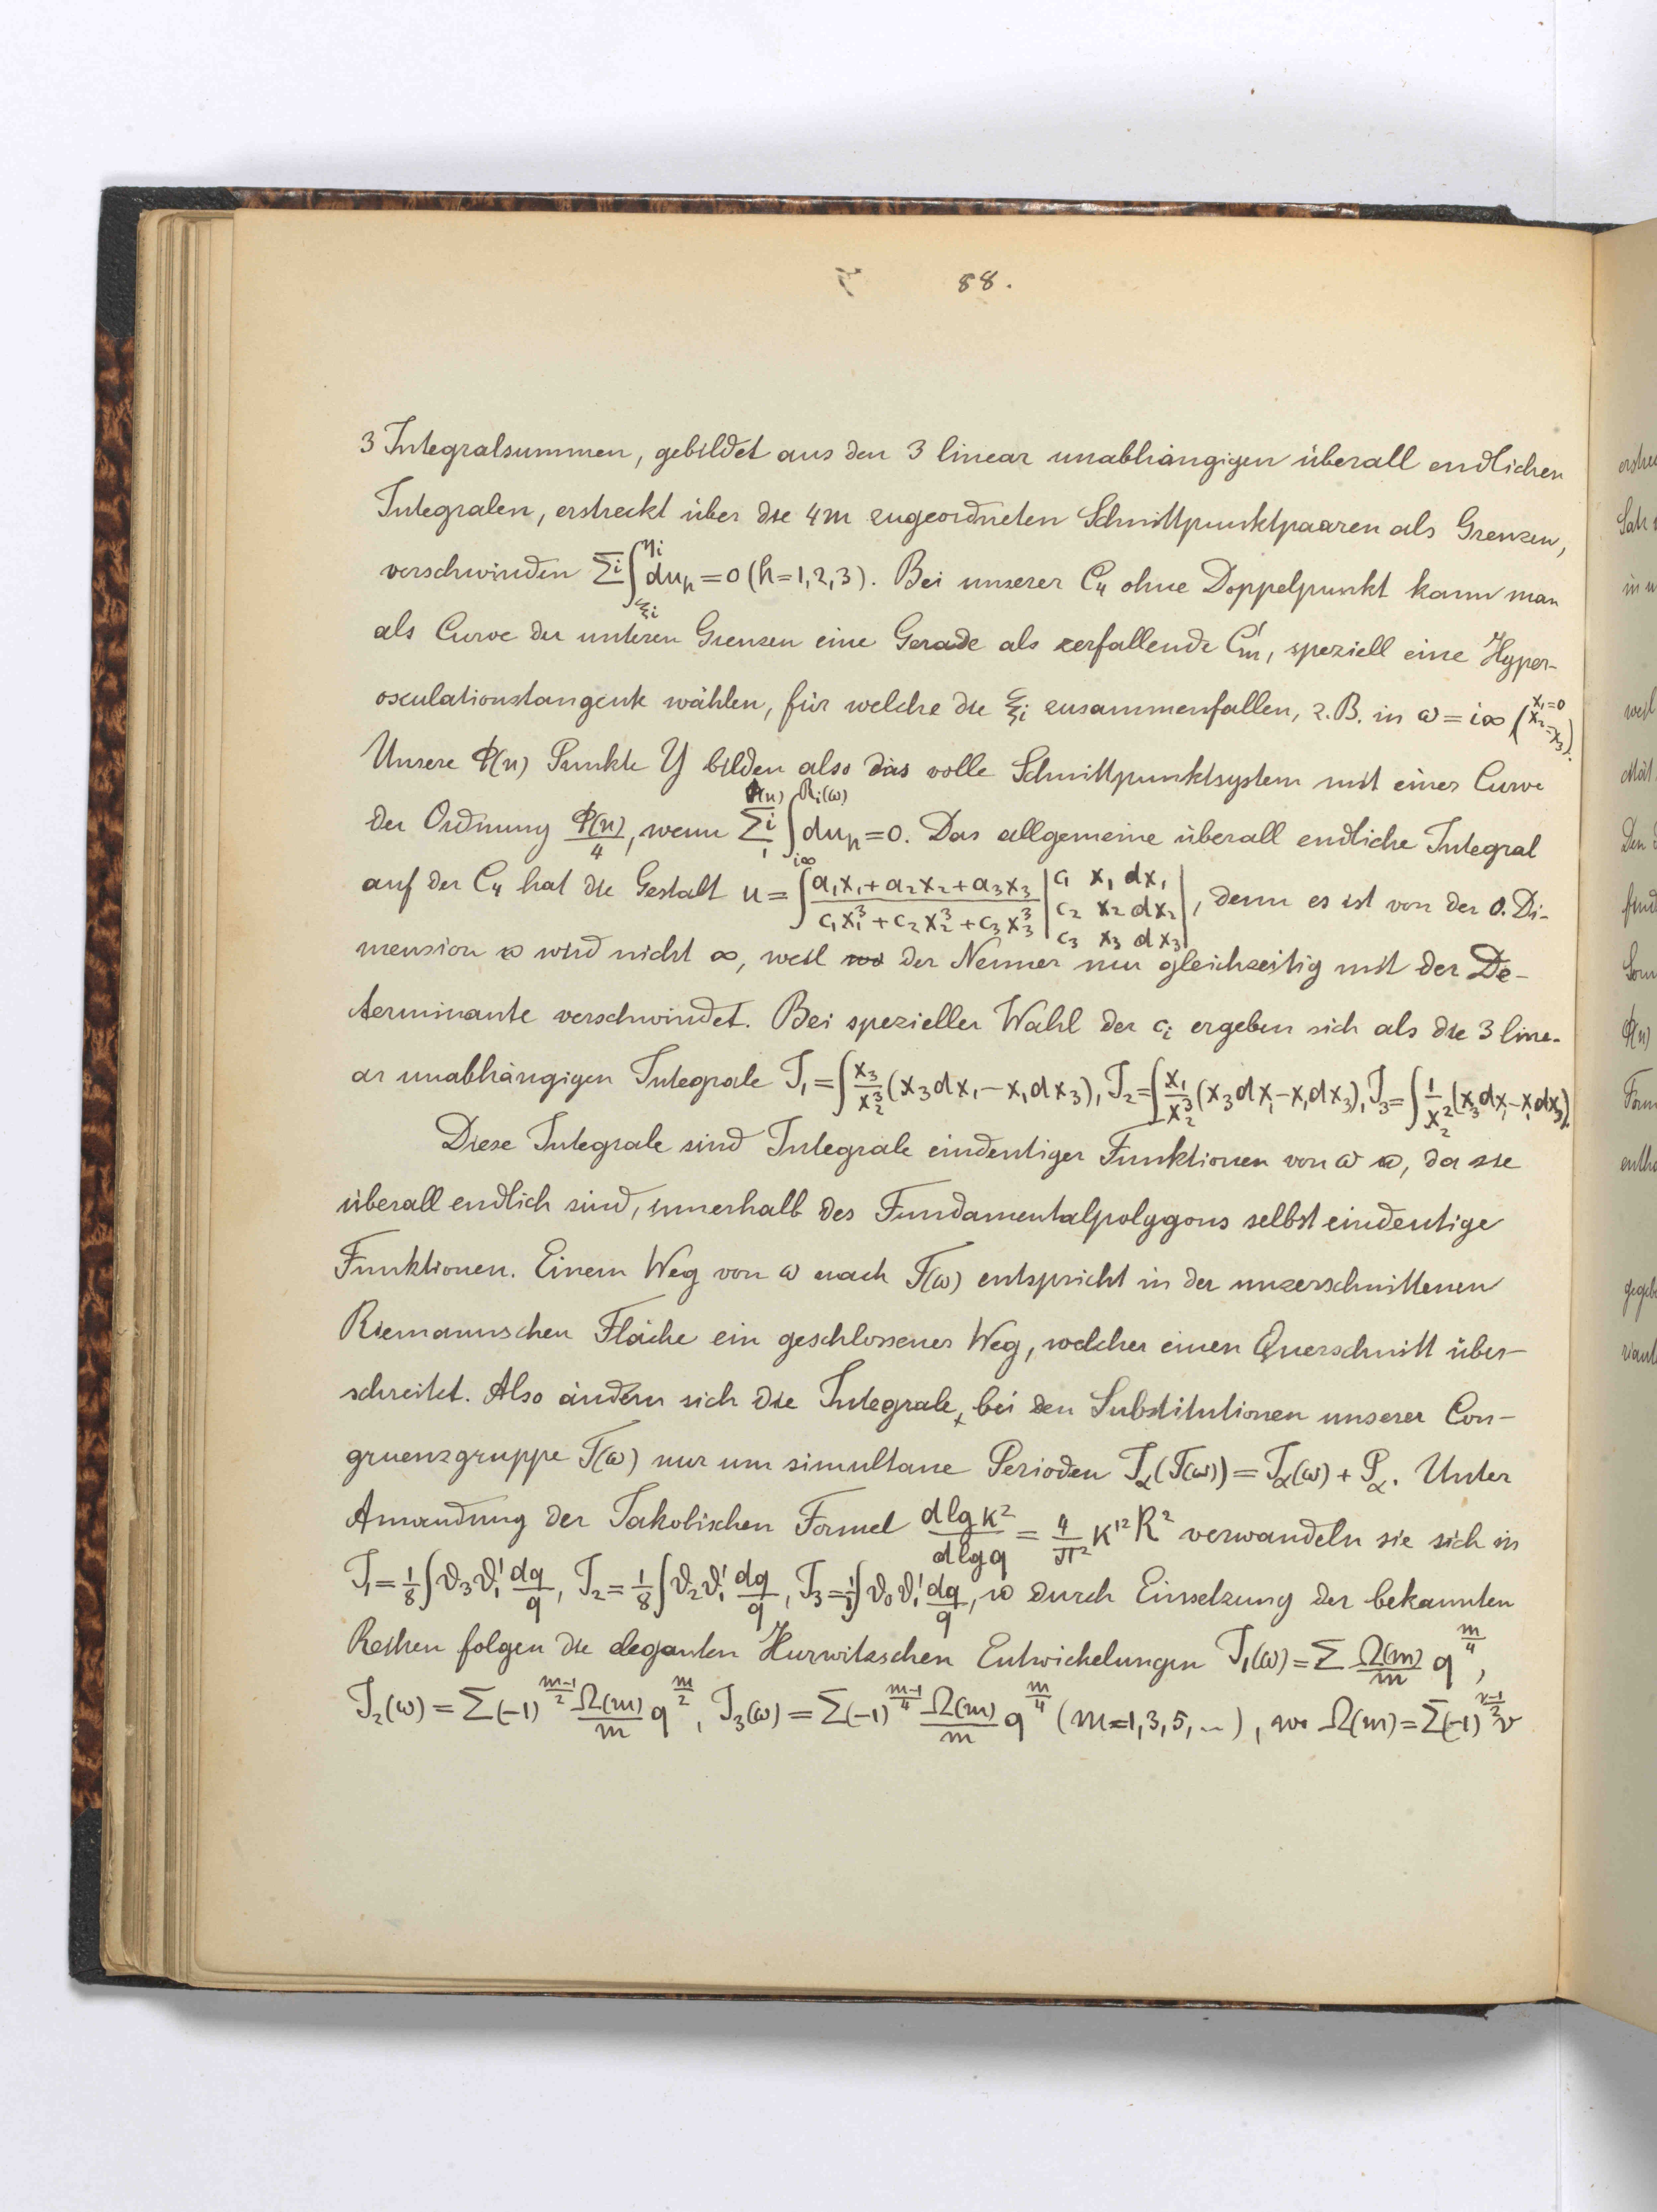 88.
3 Integralsummen, gebildet aus den 3 linear unabhängigen überall endlichen
Integralen, erstreckt über die 4m zugeordneten Schnittpunktpaaren als Grenzen,
verschwinden Σi∫_{ξi}^{ηi} du_h = 0 (h=1,2,3). Bei unserer C₄ ohne Doppelpunkt kann man
als Curve der unteren Grenzen eine Gerade als zerfallende C'm, speziell eine Hyper-
osculationstangente wählen, für welche die ξi zusammenfallen, z.B. in ω = i∞ (x₁=0 x₂=x₃).
Unsere Φ(n) Punkte Y bilden also das volle Schnittpunktsystem mit einer Curve
der Ordnung Φ(n)/4, wenn Σi_{1}^{Φ(n)} ∫_{i∞}^{Ri(ω)} du_h = 0. Das allgemeine überall endliche Integral
auf der C₄ hat die Gestalt u = ∫ (a₁x₁+a₂x₂+a₃x₃)/(c₁x₁³+c₂x₂³+c₃x₃³) |c₁ x₁ dx₁ c₂ x₂ dx₂ c₃ x₃ dx₃|, denn es ist von der 0. Di-
mension & wird nicht ∞, weil der Nenner nur gleichzeitig mit der De-
terminante verschwindet. Bei spezieller Wahl der ci ergeben sich als die 3 line-
ar unabhängigen Integrale J₁ = ∫ x₃/x₂³ (x₃dx₁ − x₁dx₃), J₂ = ∫ x₁/x₂³ (x₃dx₁ − x₁dx₃), J₃ = ∫ 1/x₂² (x₃dx₁ − x₁dx₃).
Diese Integrale sind Integrale eindeutiger Funktionen von ω &, da sie
überall endlich sind, innerhalb des Fundamentalpolygons selbst eindeutige
Funktionen. Einem Weg von ω nach T(ω) entspricht in der unzerschnittenen
Riemannschen Fläche ein geschlossener Weg, welcher einen Querschnitt über-
schreitet. Also ändern sich die Integrale, bei den Substitutionen unserer Con-
gruenzgruppe T(ω) nur um simultane Perioden J_α(T(ω)) = J_α(ω) + P_α. Unter
Anwendung der Jakobischen Formel dlgk²/dlgq = 4/π² k'² K² verwandeln sie sich in
J₁ = 1/8 ∫ϑ₃ϑ₁' dq/q, J₂ = 1/8 ∫ϑ₂ϑ₁' dq/q, J₃ = 1/8 ∫ϑ₀ϑ₁' dq/q, & durch Einsetzung der bekannten
Reihen folgen die eleganten Hurwitzschen Entwickelungen J₁(ω) = Σ Ω(m)/m q^{m/4},
J₂(ω) = Σ(−1)^{(m−1)/2} Ω(m)/m q^{m/2}, J₃(ω) = Σ(−1)^{(m−1)/4} Ω(m)/m q^{m/4} (m=1,3,5,...), wo Ω(m) = Σ(−1)^{(ν−1)/2} ν